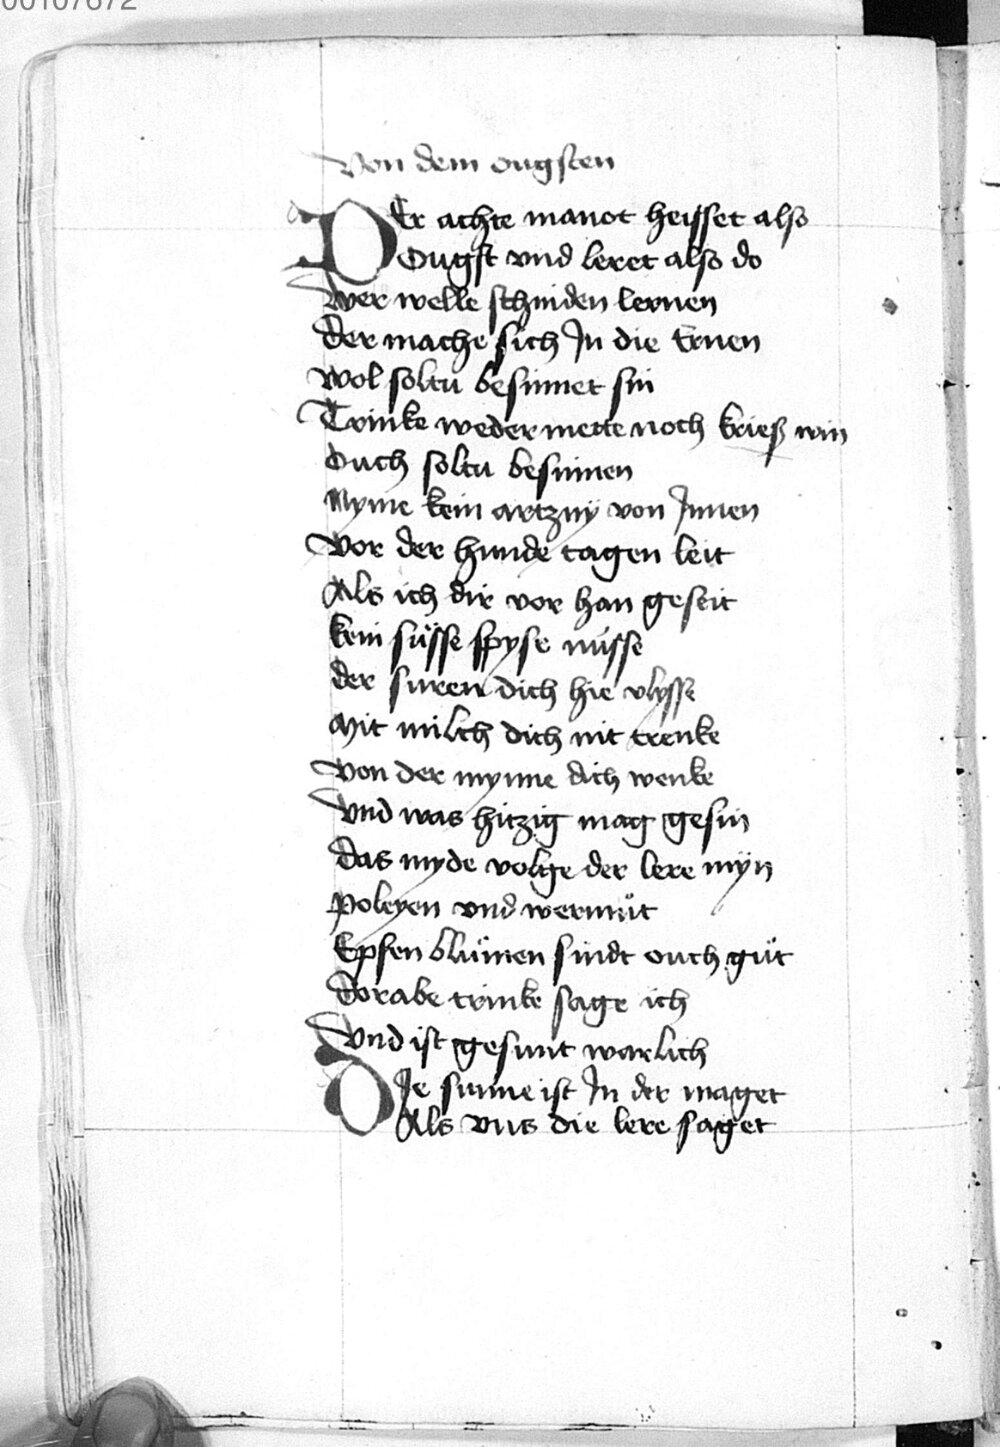 00107672
Von dem ougsten
DEr achte manot heisset also
Ougst vnd leret also do
Wer welle schniden lernen
der mache sich Jn die Ernen
wol soltu besinnet sin
Trinke weder mette noch krieß win
Ouch soltu besinnen
Nyme kein artzny von Jnnen
Vor der hunde tagen leit
Als ich dir vor han geseit
kein süsse spyse nüsse
der suren dich hie vlysse
Mit milch dich nit trenke
Von der mynne dich wenke
Vnd was hitzig mag gesin
das myde volge der lere myn
Poleyen vnd wermüt
Epfen blümen sindt ouch güt
dorabe trinke sage ich
Vnd ist gesunt warlich
DJe sunne ist Jn der maget
Als vns die lere saget